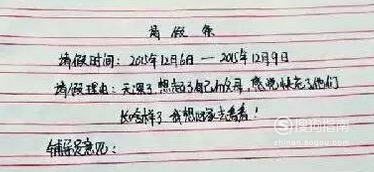 请 假 条
请假时间：2015年12月6日 — 2015年12月9日
请假理由：天冷了，想起了自己的父母，感觉快忘了他们
长啥样了 我想回家去看看！
辅导员意见：
搜狗指南